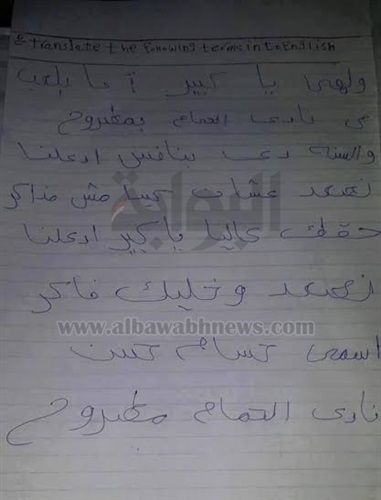 translate the following terms into English
والهى يا كبير أنا بلعب
فى نادى الحمام بمطروح
والسنة دى بنافس ادعلنا
نصعد عشان كدا مش مذاكر
حقك عليا يا كبير ادعلنا
نصعد وخليك فاكر
اسمى حسام حسن
نادى الحمام مطروح
البوابة
www.albawabhnews.com